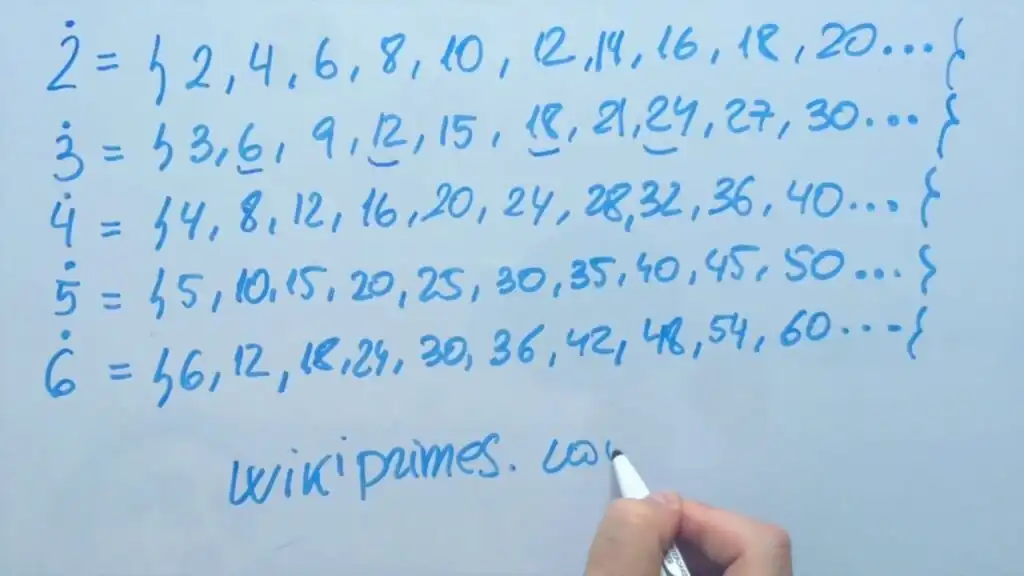 2̇ = { 2, 4, 6, 8, 10, 12, 14, 16, 18, 20... }
3̇ = { 3, 6, 9, 12, 15, 18, 21, 24, 27, 30... }
4̇ = { 4, 8, 12, 16, 20, 24, 28, 32, 36, 40... }
5̇ = { 5, 10, 15, 20, 25, 30, 35, 40, 45, 50... }
6̇ = { 6, 12, 18, 24, 30, 36, 42, 48, 54, 60... }
wikiprimes. com